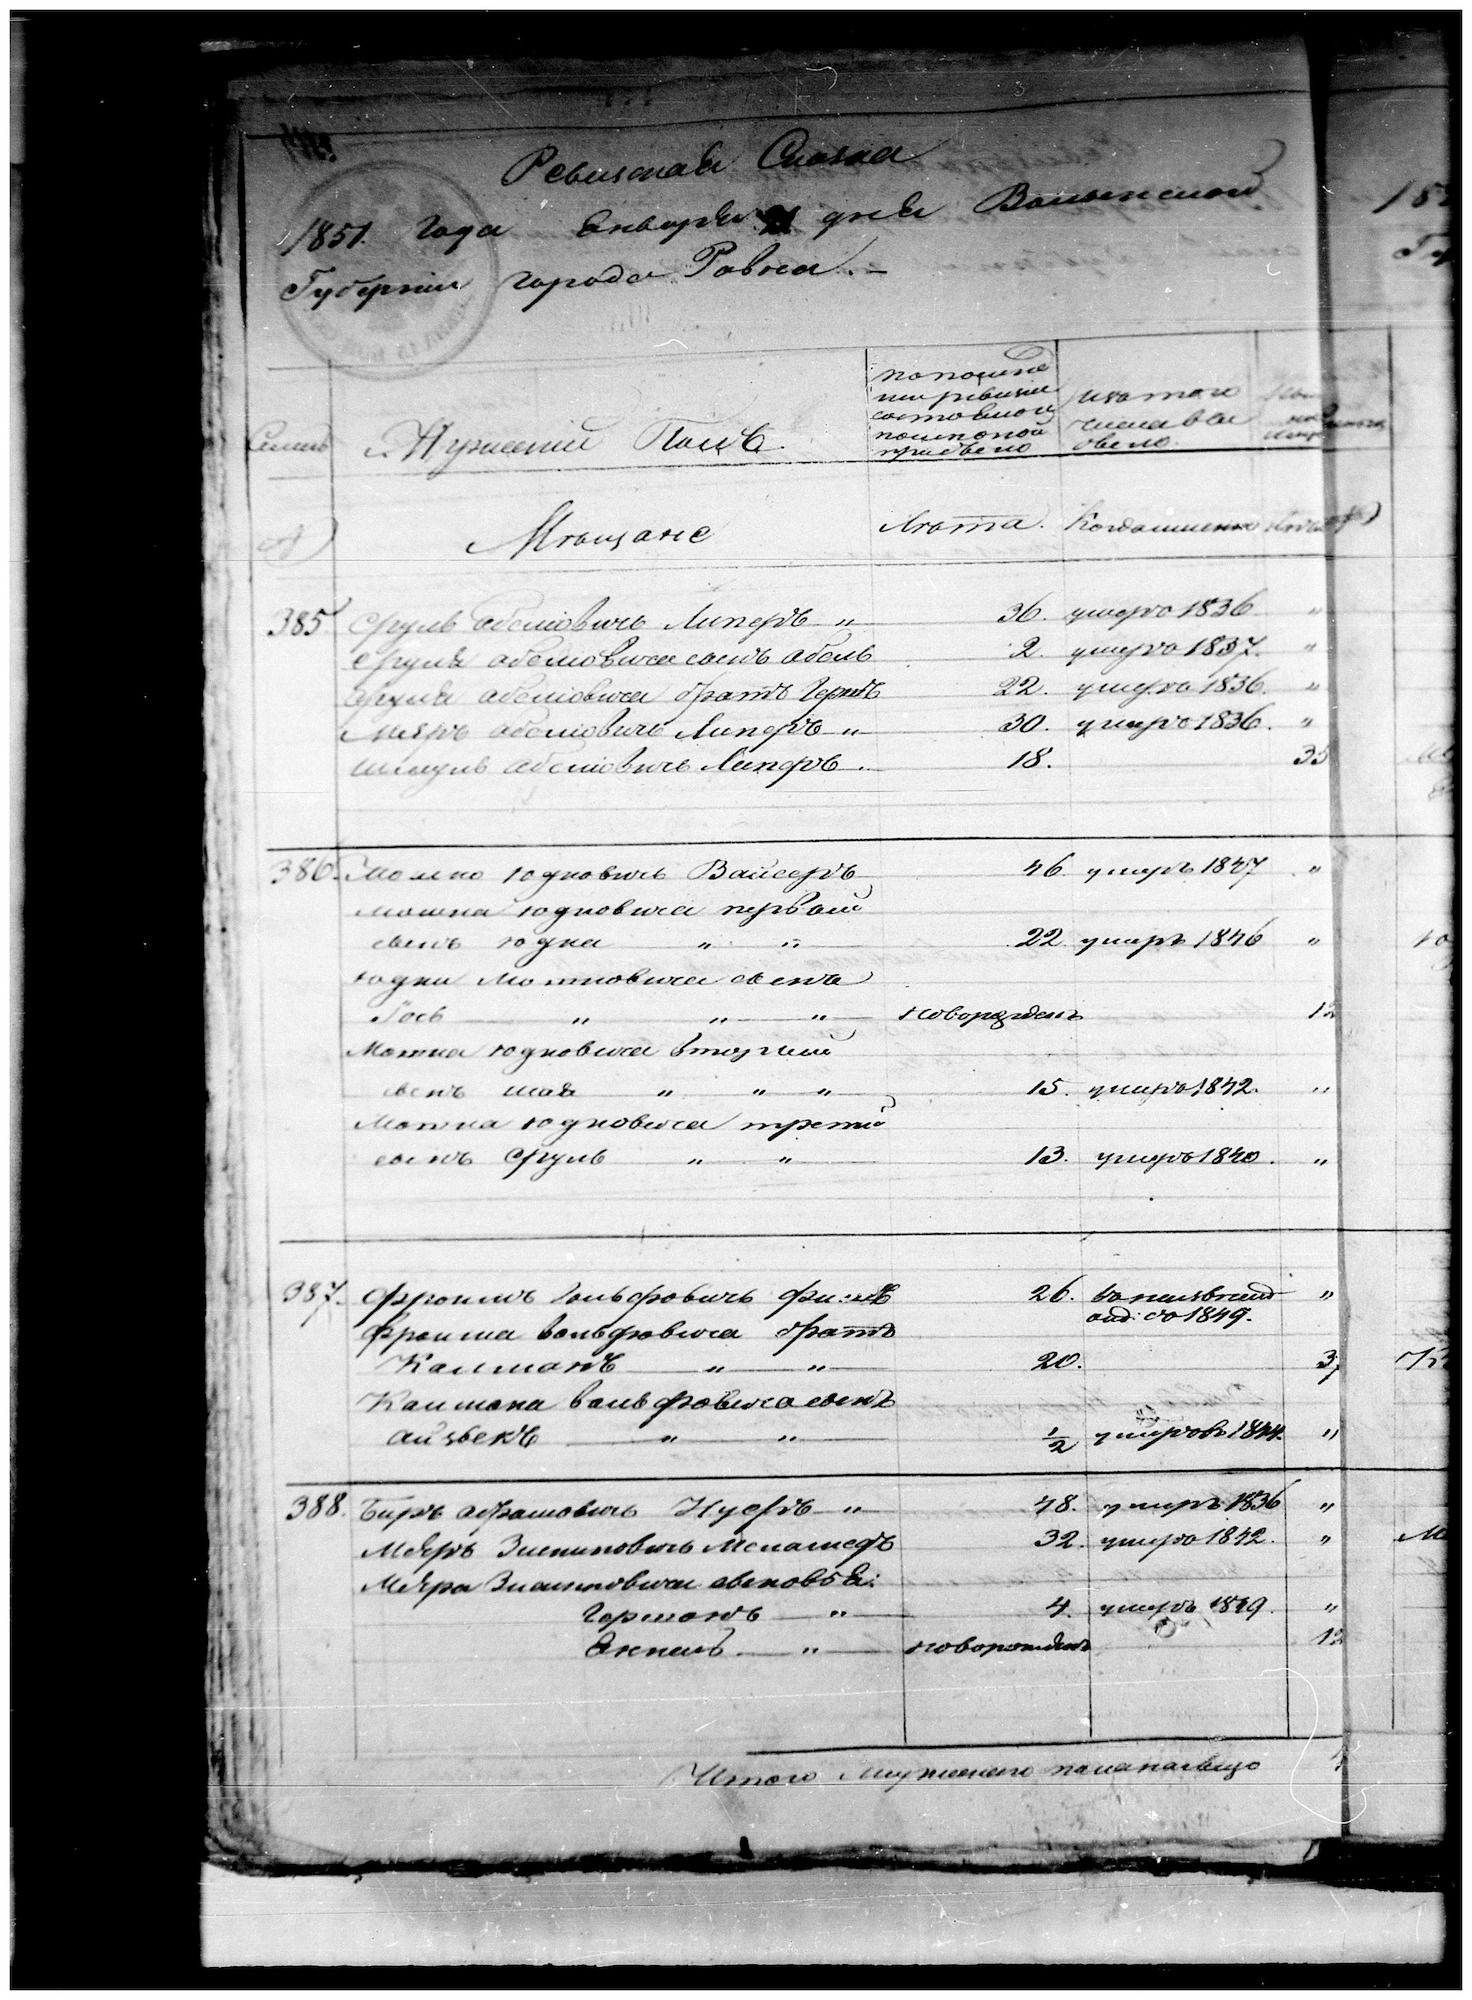 Ревизская Сказка
1851 года Января дня Волынской
Губернии города Ровна.
Семьи
Мужеский Полъ.
по последней ревизіи состояло и после оной прибыло
изъ того числа выбыло.
Мѣщане
Лѣта. Когда именно Лѣта
385 Сруль Абелiовичъ Липеръ „ 36. умеръ 1836 „
Сруля Абелiовича сынъ Абель 2. умеръ 1837. „
Сруля Абелiовича братъ Герш 22. умеръ 1836. „
Меяръ Абелiовичъ Липеръ „ 30. умеръ 1836. „
Шмуль Абелiовичъ Липеръ „ 18. 35
386. Мошко Юдковичъ Вайсеръ 46. умеръ 1847 „
Мошка Юдковича первый
сынъ Юдка „ „ 22 умеръ 1846 „
Юдки Мошковича сынъ
Iось „ „ „ новорожденъ 12
Мошка Юдковича вторый
сынъ Шая „ „ „ 15. умеръ 1842. „
Мошка Юдковича третiй
сынъ Сруль „ „ 13. умеръ 1840. „
387. Фроимъ Вольфовичъ 26. 1849. „
Фроима Вольфовича братъ
Калманъ „ „ 20. 37
Калмана Вольфовича сынъ
Айзыкъ „ „ 1/2 умеръ въ 1844. „
388. Беръ Абрамовичъ „ 48. умеръ 1836 „
Меяръ 32. умеръ 1842. „
Меяра сыновья:
Германъ „ 4. умеръ 1849. „
Янкель „ новорожденъ 12
Итого Мужескаго пола налицо